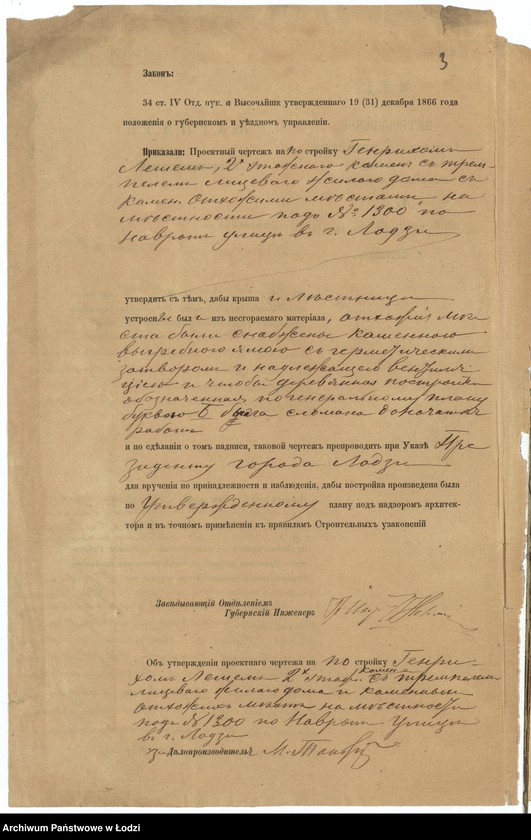 3
Законъ:
34 ст. IV Отд. пук. а Высочайше утвержденнаго 19 (31) декабря 1866 года
положенія о губернскомъ и уѣздномъ управленіи.
Приказали: Проектный чертежъ на постройку Генрихомъ
Лешемъ, 2х этажнаго камен. съ трем-
пелемъ лицеваго жилаго дома съ
камен. отхожими мѣстами на
мѣстности подъ № 1300 по
Навротъ улицѣ въ г. Лодзи
утвердить съ тѣмъ, дабы крыша и лѣстница
устроены были изъ несгораемаго матеріала, отхожія мѣ-
ста были снабжены каменною
выгребною ямою съ герметическимъ
затворомъ и надлежащею вентиля-
ціею и чтобы деревянная постройка
обозначенная по генеральному плану
буквою была сломана до начатія
работъ
и по сдѣланіи о томъ надписи, таковой чертежъ препроводить при Указѣ Пре-
зиденту города Лодзи
для врученія по принадлежности и наблюденія, дабы постройка произведена была
по Утвержденному плану подъ надзоромъ архитек-
тора и въ точномъ примѣненіи къ правиламъ Строительныхъ узаконеній
Завѣдывающій Отдѣленіемъ
Губернскій Инженеръ
Объ утвержденіи проектнаго чертежа на постройку Генри-
хомъ Лешемъ 2х этаж. камен. съ тремпелемъ
лицеваго жилаго дома и каменныхъ
отхожихъ мѣстъ на мѣстности
подъ № 1300 по Навротъ Улицѣ
въ г. Лодзи
за Дѣлопроизводитель
Archiwum Państwowe w Łodzi